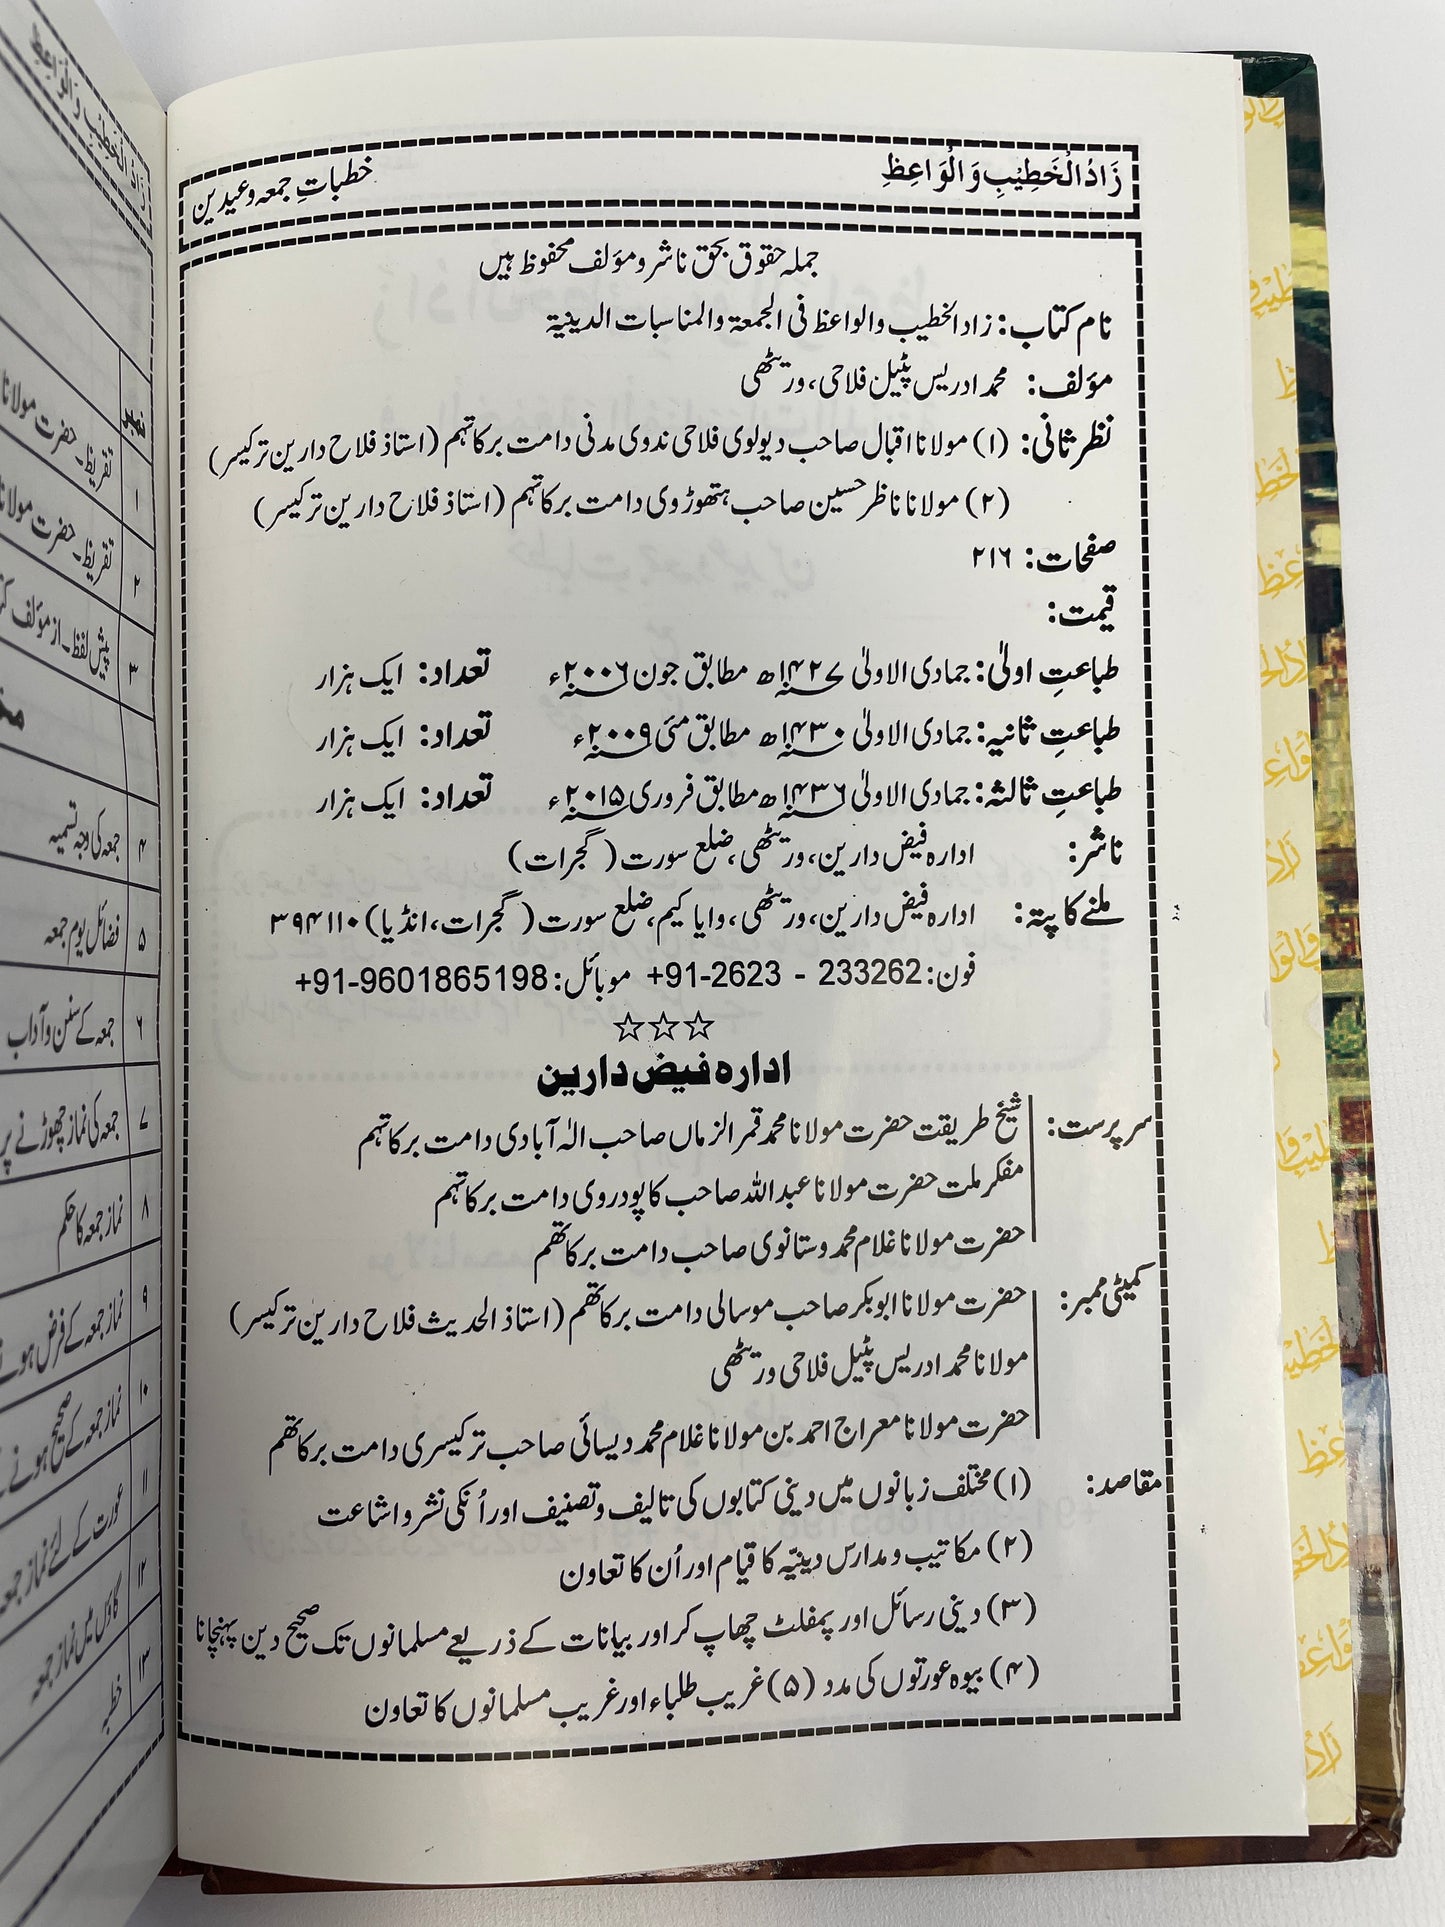 زَادُ الْخَطِيْبِ وَالْوَاعِظِ
خطباتِ جمعہ وعیدین
جملہ حقوق بحق ناشر ومؤلف محفوظ ہیں
نام کتاب: زاد الخطیب والواعظ فی الجمعة والمناسبات الدینیة
مؤلف: محمد ادریس پٹیل فلاحی، وریٹھی
نظر ثانی: (۱) مولانا اقبال صاحب دیولوی فلاحی ندوی مدنی دامت برکاتہم (استاذ فلاح دارین ترکیسر)
(۲) مولانا ناظر حسین صاحب ہتھوڑوی دامت برکاتہم (استاذ فلاح دارین ترکیسر)
صفحات: ۲۱۶
قیمت:
طباعتِ اولیٰ: جمادی الاولیٰ ۱۴۲۷ھ مطابق جون ۲۰۰۶ء تعداد: ایک ہزار
طباعتِ ثانیہ: جمادی الاولیٰ ۱۴۳۰ھ مطابق مئی ۲۰۰۹ء تعداد: ایک ہزار
طباعتِ ثالثہ: جمادی الاولیٰ ۱۴۳۶ھ مطابق فروری ۲۰۱۵ء تعداد: ایک ہزار
ناشر: ادارہ فیض دارین، وریٹھی، ضلع سورت (گجرات)
ملنے کا پتہ: ادارہ فیض دارین، وریٹھی، وایا کیم، ضلع سورت (گجرات، انڈیا) ۳۹۴۱۱۰
فون: 233262 - 2623-91+ موبائل: 9601865198-91+
☆☆☆
ادارہ فیض دارین
سرپرست: شیخ طریقت حضرت مولانا محمد قمر الزماں صاحب الٰہ آبادی دامت برکاتہم
مفکر ملت حضرت مولانا عبداللہ صاحب کاپودروی دامت برکاتہم
حضرت مولانا غلام محمد وستانوی صاحب دامت برکاتھم
کمیٹی ممبر: حضرت مولانا ابوبکر صاحب موسالی دامت برکاتھم (استاذ الحدیث فلاح دارین ترکیسر)
مولانا محمد ادریس پٹیل فلاحی وریٹھی
حضرت مولانا معراج احمد بن مولانا غلام محمد دیسائی صاحب ترکیسری دامت برکاتھم
مقاصد: (۱) مختلف زبانوں میں دینی کتابوں کی تالیف وتصنیف اور اُنکی نشر واشاعت
(۲) مکاتیب و مدارس دینیّہ کا قیام اور اُن کا تعاون
(۳) دینی رسائل اور پمفلٹ چھاپ کر اور بیانات کے ذریعے مسلمانوں تک صحیح دین پہنچانا
(۴) بیوہ عورتوں کی مدد (۵) غریب طلباء اور غریب مسلمانوں کا تعاون
زَادُ الْخَطِيْبِ وَالْوَاعِظِ
نمبر
۱ تقریظ۔ حضرت مولانا
۲ تقریظ۔ حضرت مولانا
۳ پیش لفظ۔ از مؤلف
۴ جمعہ کی وجہ تسمیہ
۵ فضائل یوم جمعہ
۶ جمعہ کے سنن و آداب
۷ جمعہ کی نماز چھوڑنے پر
۸ نماز جمعہ کا حکم
۹ نماز جمعہ کے فرض ہونے
۱۰ نماز جمعہ کے صحیح ہونے
۱۱ عورت کے لئے نماز جمعہ
۱۲ گاؤں میں نماز جمعہ
۱۳ خطبہ